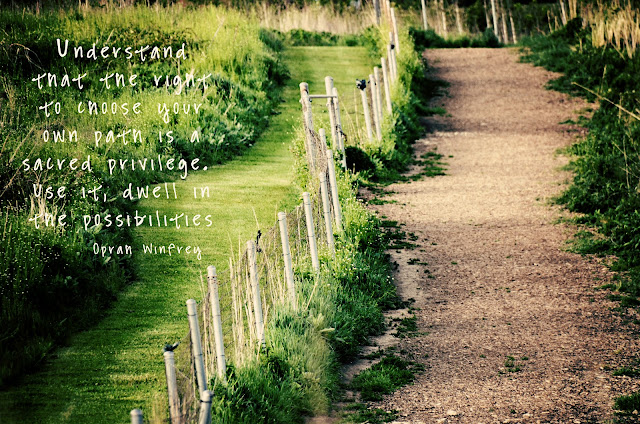 Understand
that the right
to choose your
own path is a
sacred privilege.
Use it, dwell in
the possibilities
Oprah Winfrey